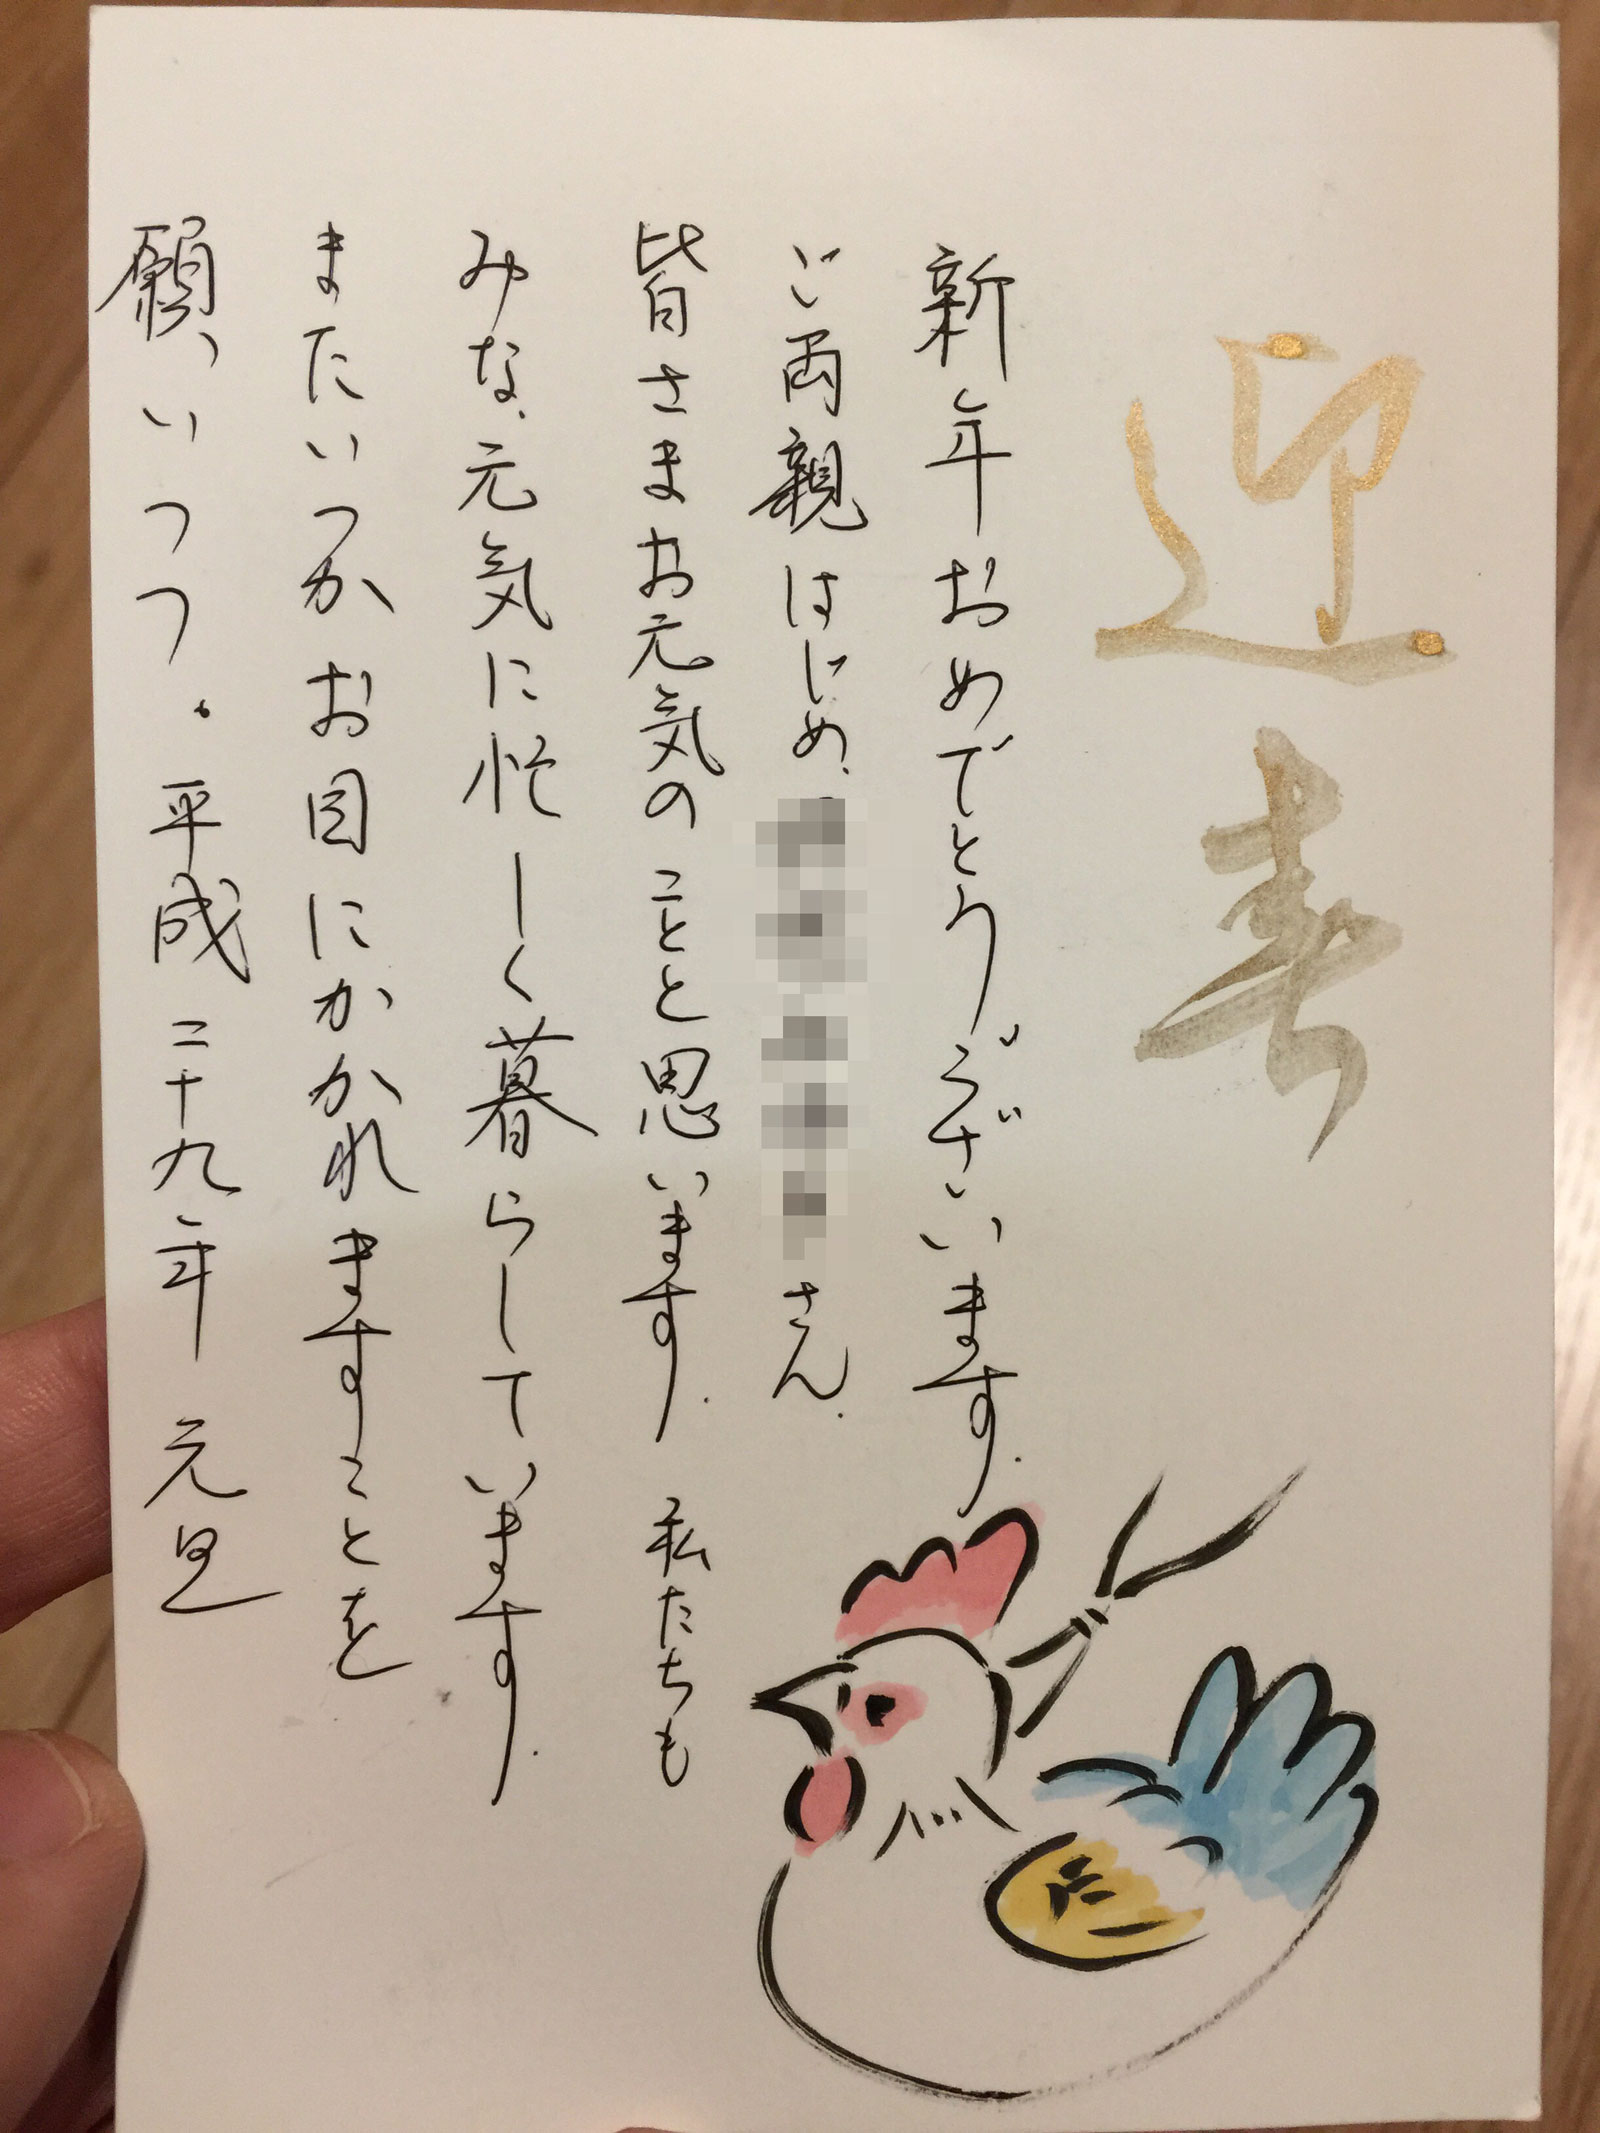 迎春
新年おめでとうございます.
ご両親はじめ、さん.
皆さまお元気のことと思います.私たちも
みな、元気に忙しく暮らしています.
またいつかお目にかかれますことを
願いつつ.平成二十九年元旦